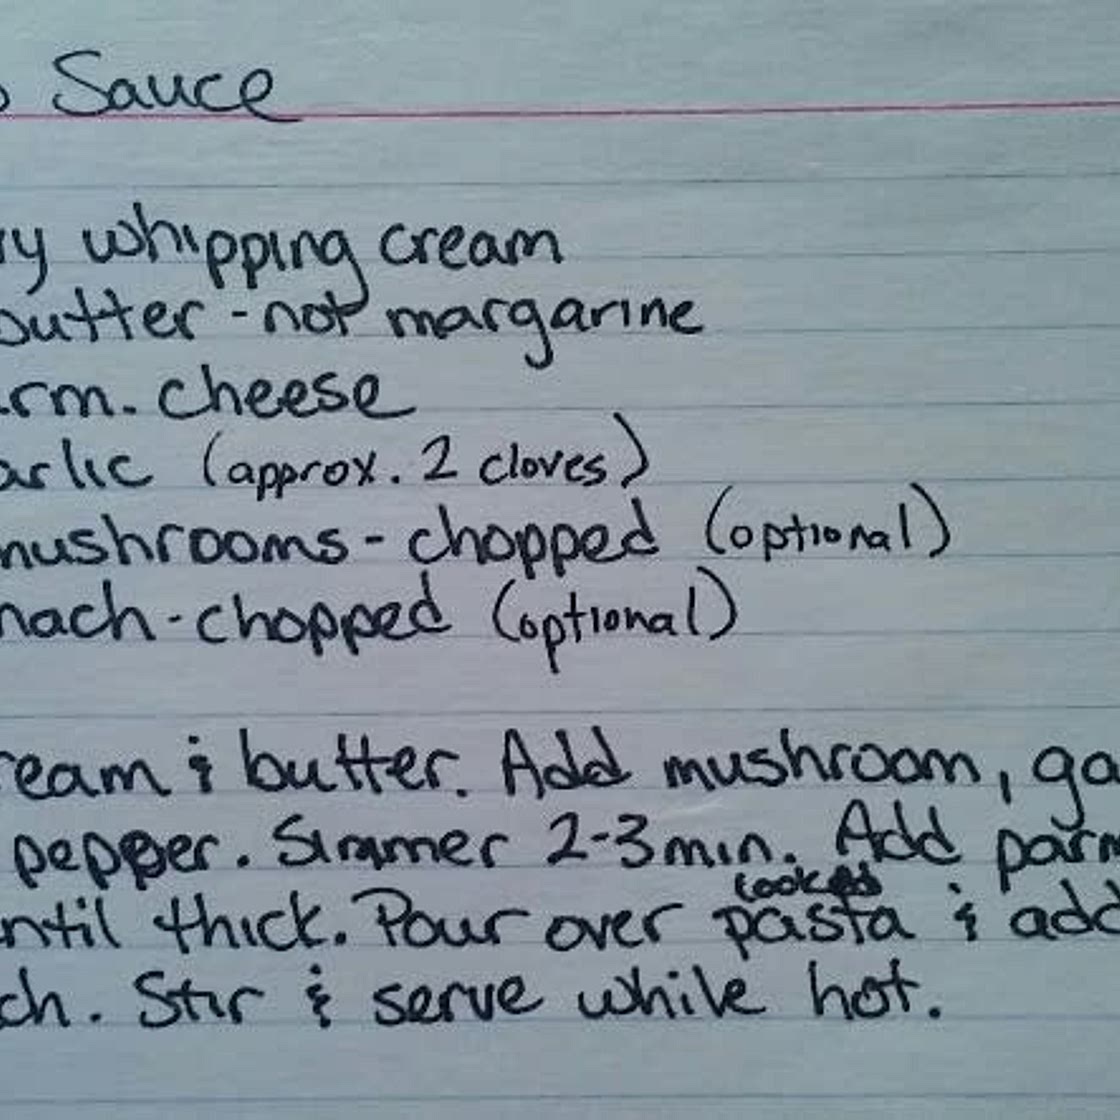 Sauce
ry whipping cream
butter - not margarine
rm. cheese
arlic (approx. 2 cloves)
mushrooms - chopped (optional)
nach - chopped (optional)
ream & butter. Add mushroom, ga
pepper. Simmer 2-3 min. Add parm
cooked
ntil thick. Pour over pasta & add
ch. Stir & serve while hot.